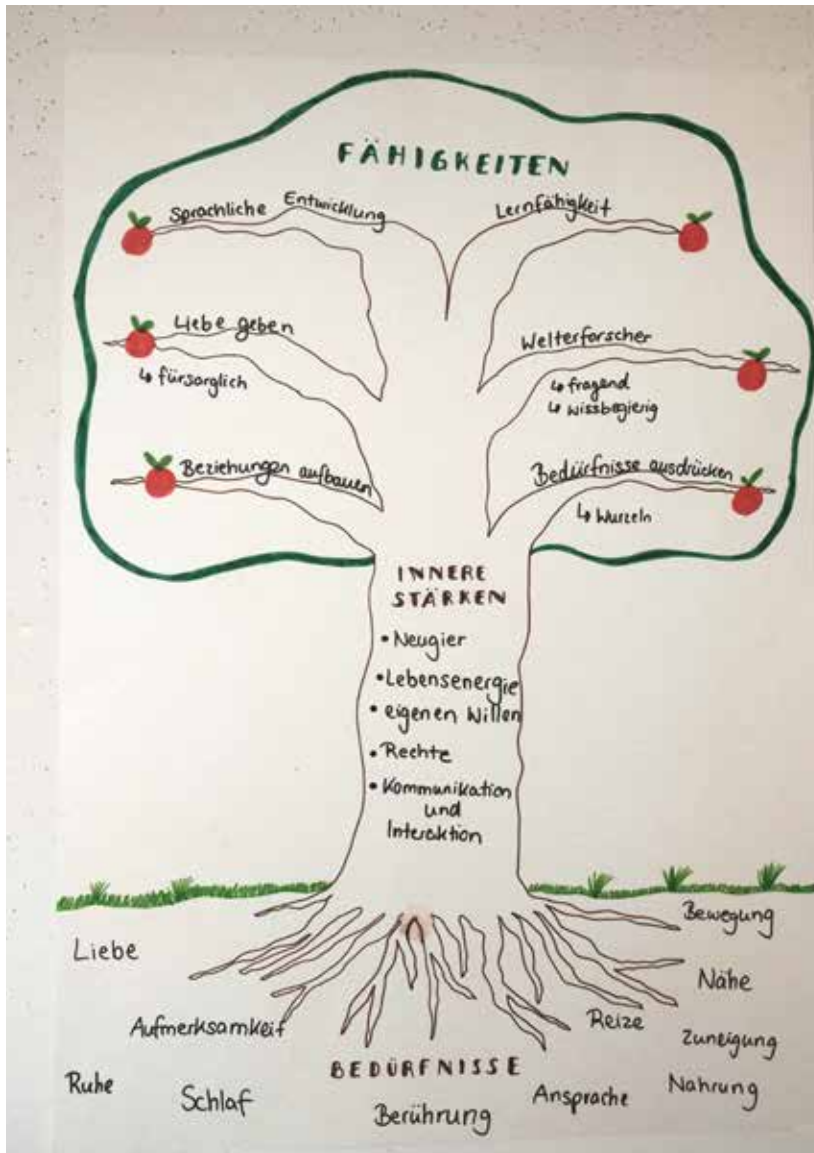 FÄHIGKEITEN
Sprachliche Entwicklung
Lernfähigkeit
Liebe geben
↳ fürsorglich
Welterforscher
↳ fragend
↳ wissbegierig
Beziehungen aufbauen
Bedürfnisse ausdrücken
↳ Wurzeln
INNERE
STÄRKEN
• Neugier
• Lebensenergie
• eigenen Willen
• Rechte
• Kommunikation
und
Interaktion
Bewegung
Liebe
Nähe
Aufmerksamkeit
Reize
Zuneigung
BEDÜRFNISSE
Ruhe
Schlaf
Berührung
Ansprache
Nahrung